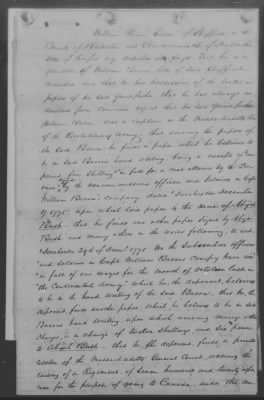 William Bacon of Sheffield in the
County of Berkshire and Commonwealth of Massachusetts
son of depose and say, That he is a
grandson of William Bacon late of said Sheffield
deceased and that he has possession of the books and
papers of his said grandfather that he has always un
derstood from common report that his said grandfather
William Bacon, was a Captain in the Massachusetts line
of the Revolutionary Army, that among the papers of
the said Bacon he finds a paper which he believes to
be in said Bacon's hand writing, being a receipt of "one
pound, five shilling" in full for a coat allowed by the Pro
vince, by the noncommissioned officers and soldiers in Capt.
William Bacon's company, dated "Dorchester December
1775" upon which said paper is the name of Abijah
Rush - that he finds an other paper signed by Abijah
Rush and many others in the words following, to wit,
"Dorchester 29th of Decemr 1775 We the Subscribers officers
and soldiers in Capt William Bacons Company have recd
in full of our wages for the month of October last, in
the Continental Army," which he, the deponent, believes
to be in the hand writing of the said Bacon, that he, the
deponent finds another paper, which he believes to be in said
Bacons hand writing upon which among many other
charges, is a charge of twelve shillings and six pence
to Abijah Rush - that he, the deponent, finds, a printed
resolve of the Massachusetts General Court, ordering the
raising of a Regiment, of seven hundred and twenty eight
men for the purpose of going to Canada, under the com